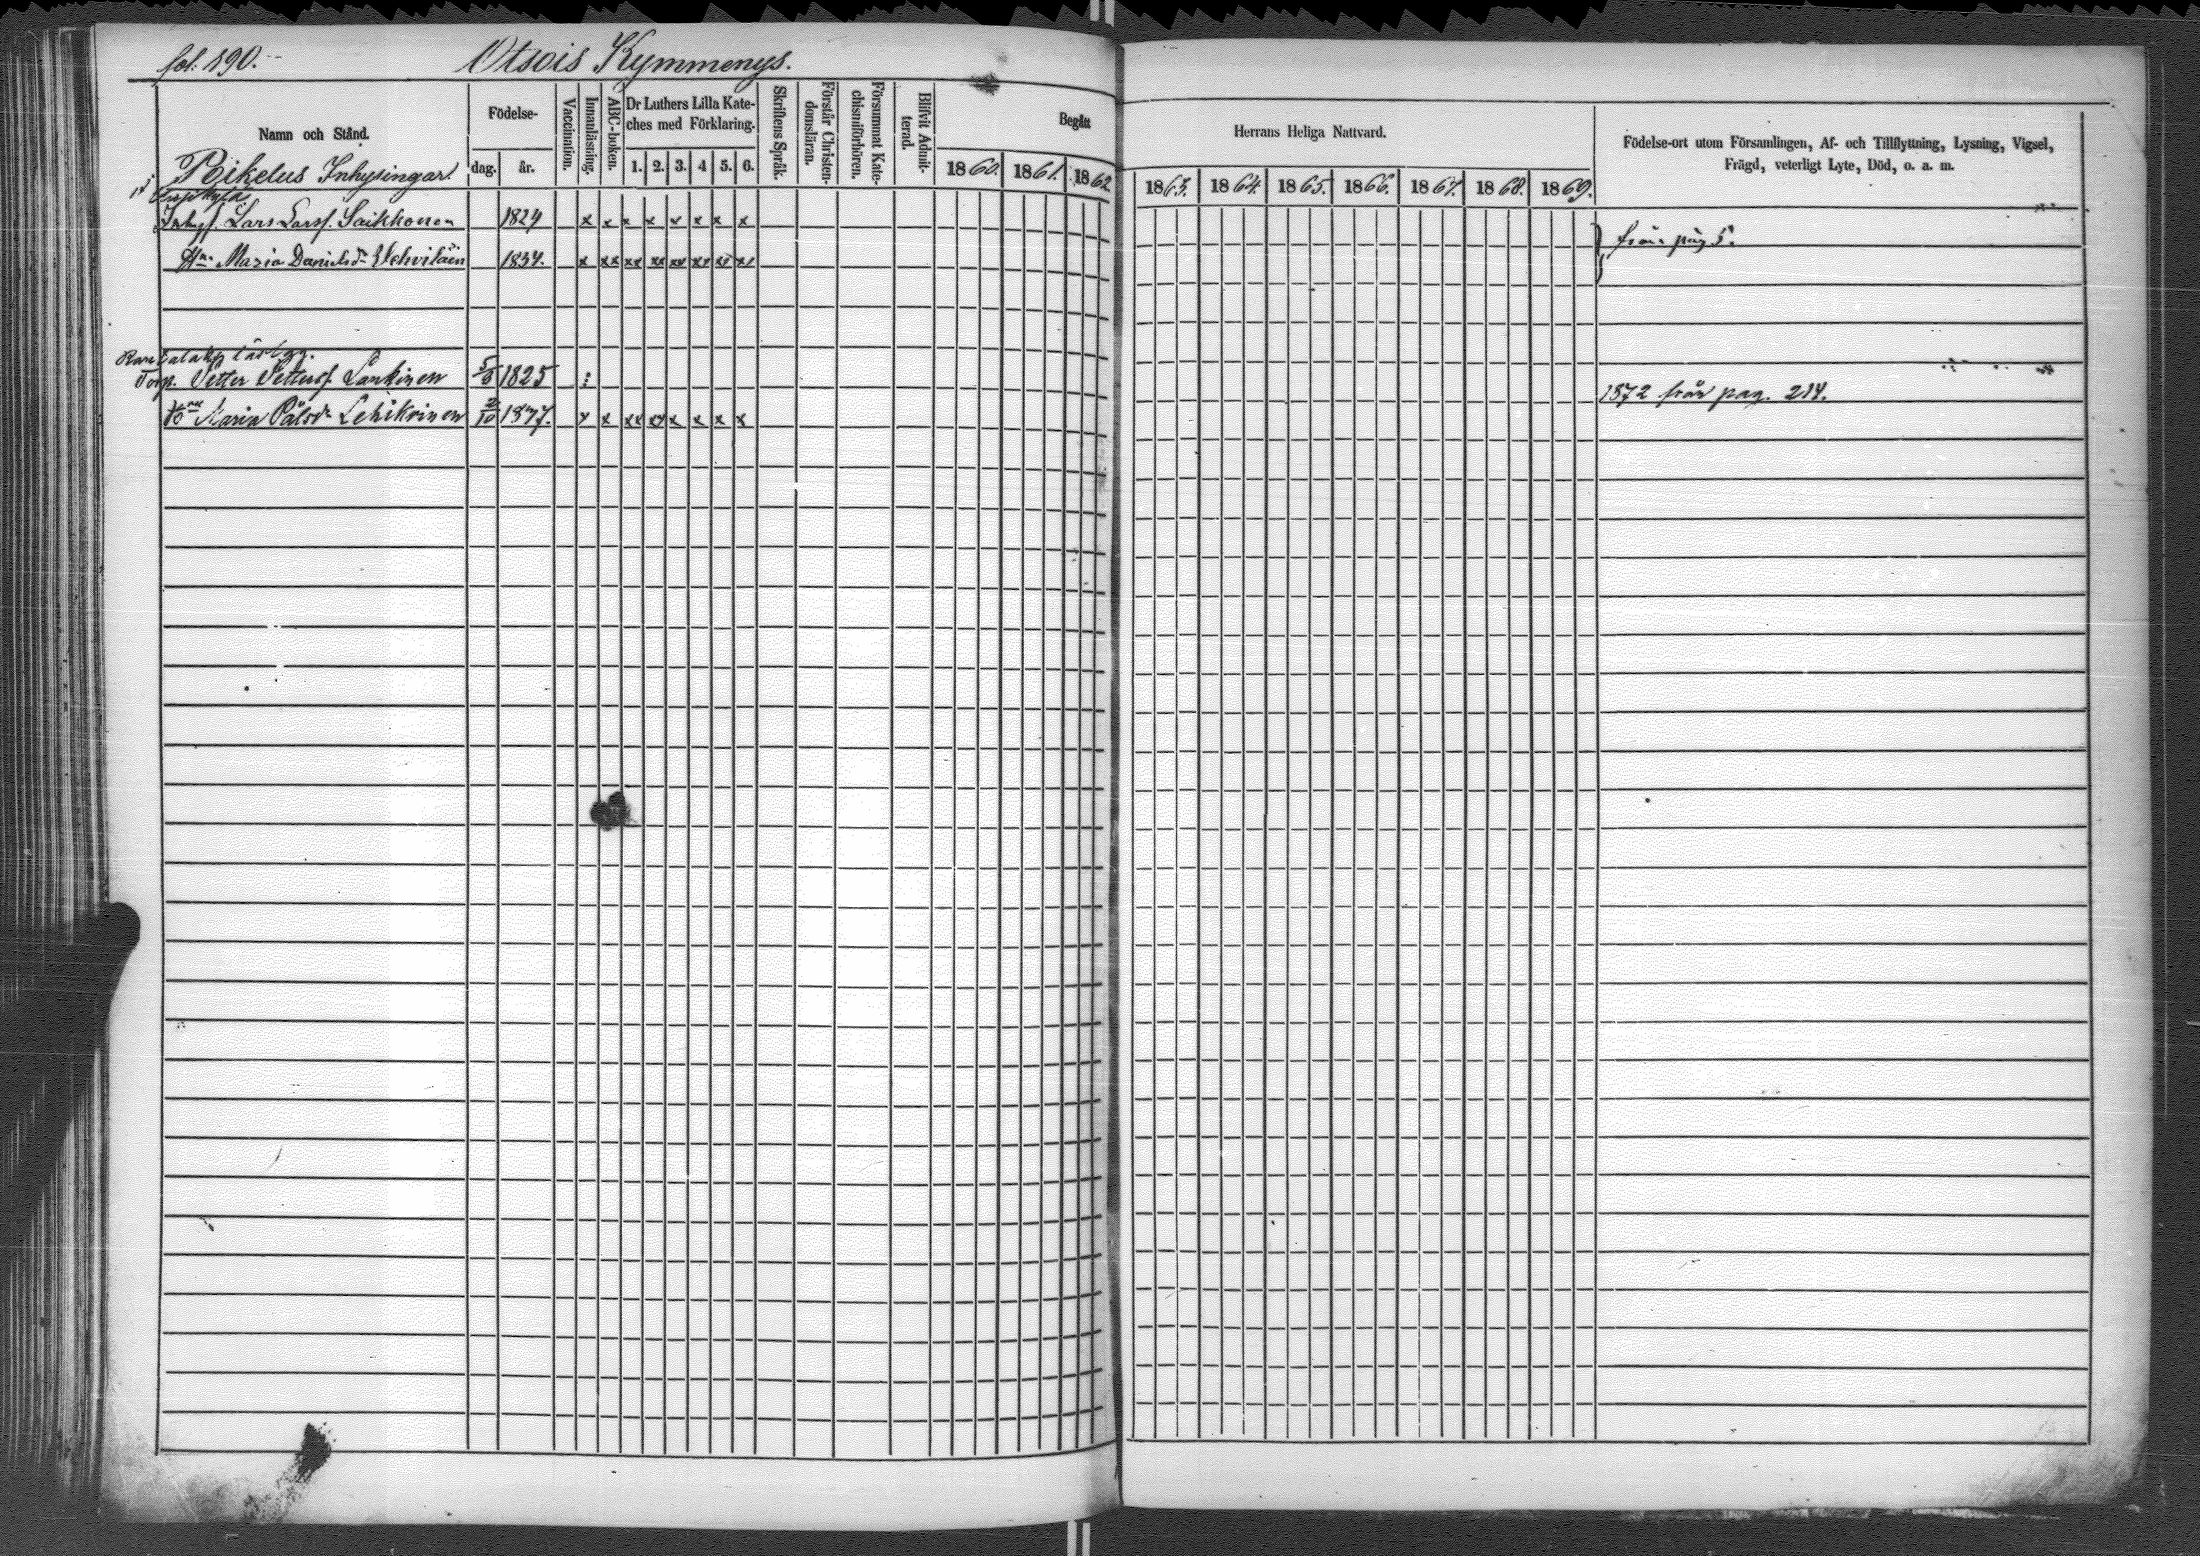 fol. 190.
Otsois Kymmenys.
Namn och Stånd.
Födelse-
dag.
år.
Vaccination.
Innanläsning.
ABC-boken.
Dr Luthers Lilla Kate-
ches med Förklaring.
1. 2. 3. 4 5. 6.
Skriftens Språk.
Förstår Christen-
domsläran.
Försummat Kate-
chismiförhören.
Blifvit Admit-
terad.
Begått
Herrans Heliga Nattvard.
1860. 1861. 1862 1863. 1864 1865. 1866. 1867. 1868. 1869.
Födelse-ort utom Församlingen, Af- och Tillflyttning, Lysning, Vigsel,
Frägd, veterligt Lyte, Död, o. a. m.
Rikelus Inhysingar
Lars Larsf. Saikkonen 1824 x x x x x x x x
från pag 5.
Hu. Maria Danielsdr 1834. x xx xx xx xx xx xx xx
Torp. Petter Pettersf. 1825
1872 från pag. 214.
Maria Pålsdr Lehikoinen 2/10 1877. x x xx xx x x x x